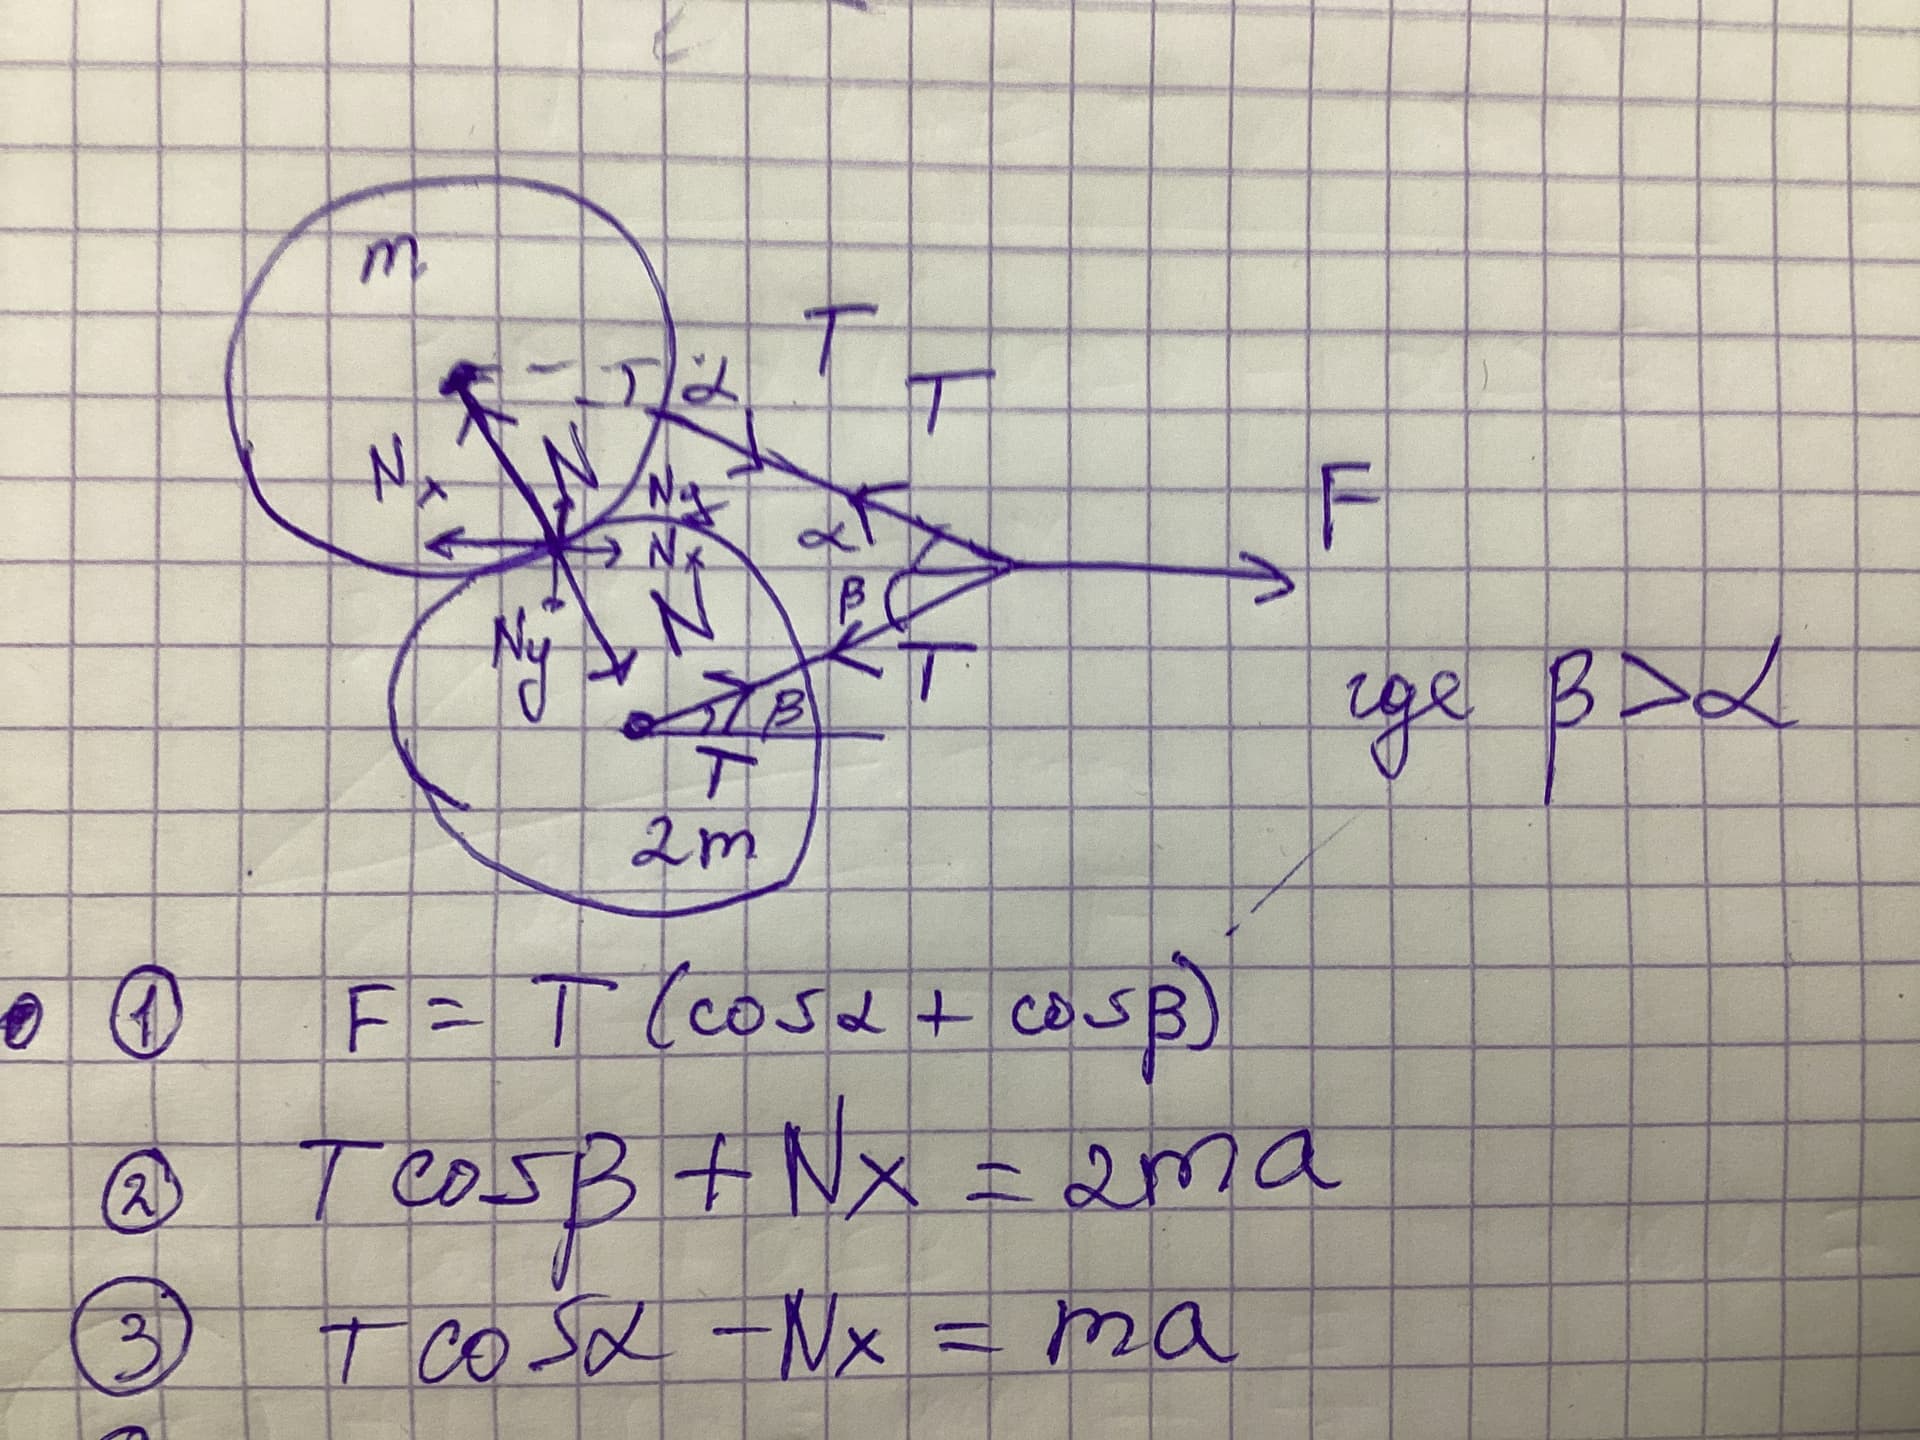 m
T
α
T
F
Nx
N
Ny
α
Nx
β
N
Ny
T
β
T
2m
где β > α
① F = T (cosα + cosβ)
② T cosβ + Nx = 2ma
③ T cosα - Nx = ma